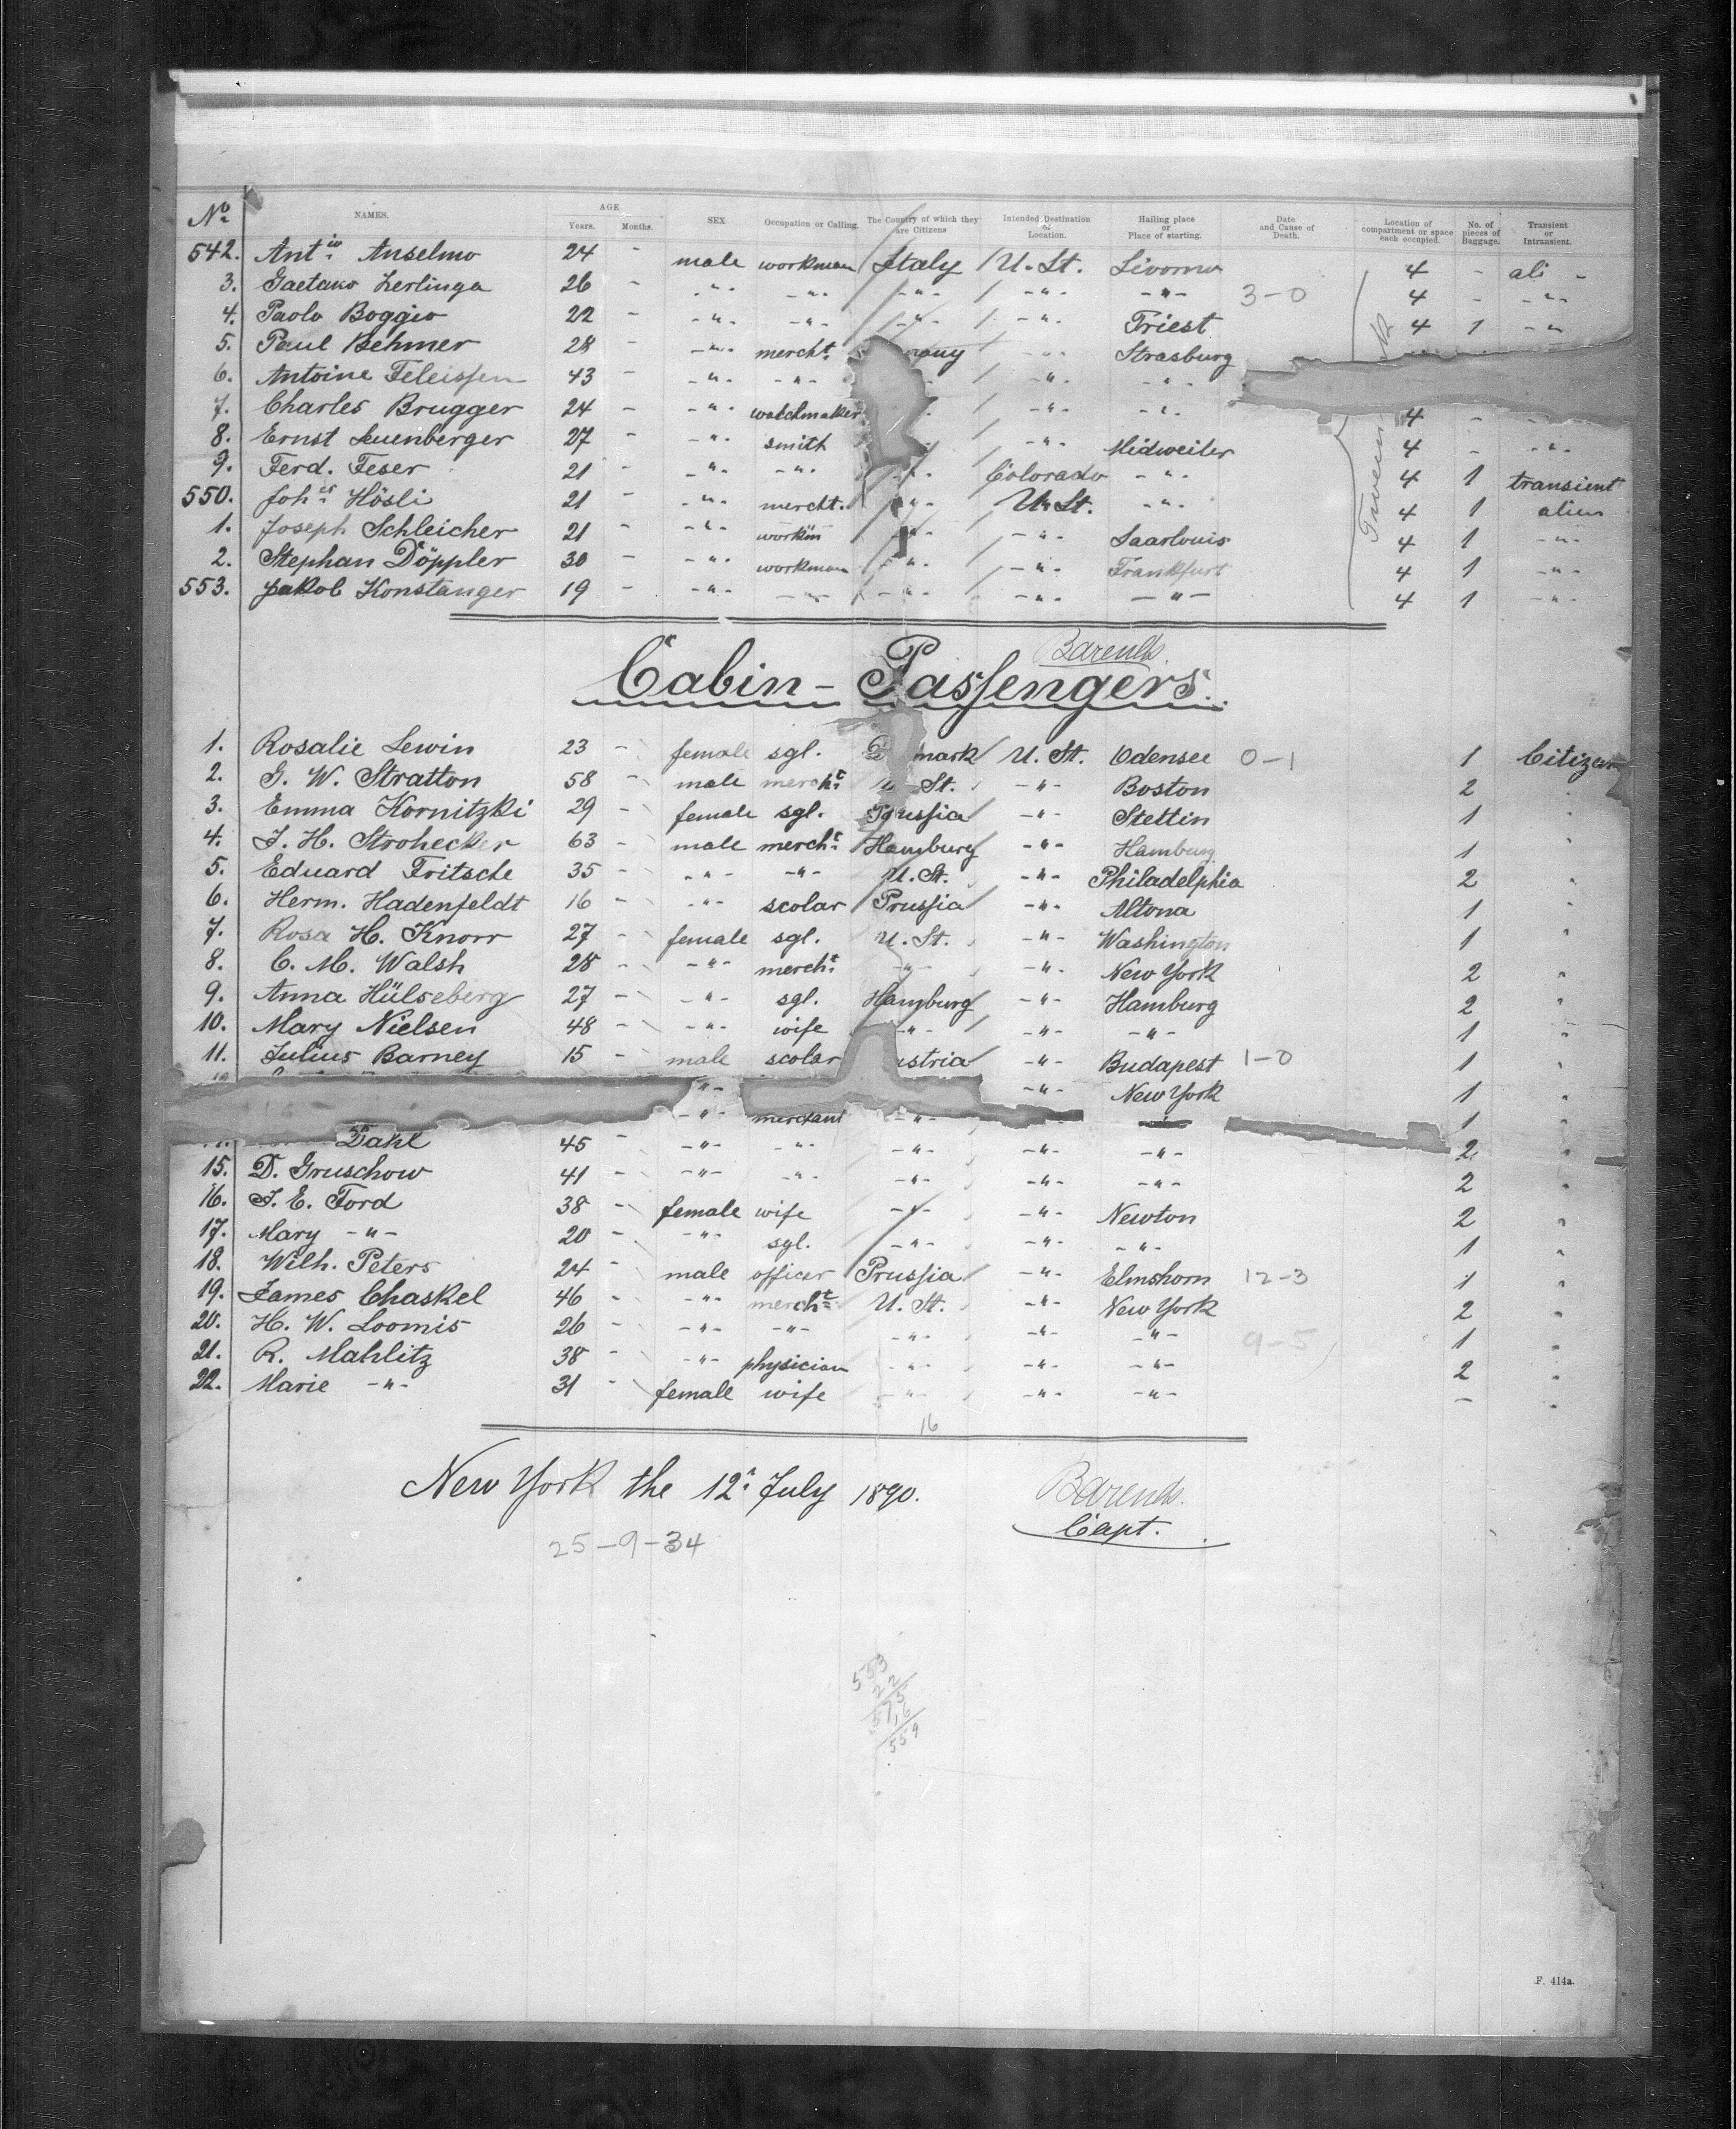 No. NAMES. AGE Years. Months. SEX Occupation or Calling. The Country of which they are Citizens Intended Destination or Location. Hailing place or Place of starting. Date and Cause of Death. Location of compartment or space each occupied. No. of pieces of Baggage. Transient or Intransient.
542. Antio Anselmo 24 - male workman Italy U. St. Livorno 4 - ali -
3. Gaetano Zerlinga 26 - -"- -"- -"- -"- -"- 3-0 4 - -"-
4. Paolo Boggio 22 - -"- -"- -"- -"- Triest 4 1 -"-
5. Paul Behmer 28 - -"- mercht. many -"- Strasburg
6. Antoine Feleissen 43 - -"- -"- -"- -"-
7. Charles Brugger 24 - -"- watchmaker -"- -"- 4 -
8. Ernst Leuenberger 27 - -"- smith -"- Midweiler 4 - -"-
9. Ferd. Feser 21 - -"- -"- -"- Colorado -"- 4 1 transient
550. Johes Hösli 21 - -"- mercht. -"- U. St. -"- 4 1 alien
1. Joseph Schleicher 21 - -"- workm -"- -"- Saarlouis 4 1 -"-
2. Stephan Döppler 30 - -"- workman -"- -"- Frankfurt 4 1 -"-
553. Jakob Konstanger 19 - -"- -"- -"- -"- -"- 4 1 -"-
Barends.
Cabin-Passengers.
1. Rosalie Lewin 23 - female sgl. D mark U. St. Odensee 0-1 1 Citizen
2. G. W. Stratton 58 - male mercht. U St. -"- Boston 2 "
3. Emma Kornitzki 29 - female sgl. Prussia -"- Stettin 1 "
4. J. H. Strohecker 63 - male mercht. Hamburg -"- Hamburg 1 "
5. Eduard Fritsche 35 - -"- -"- U. St. -"- Philadelphia 2 "
6. Herm. Hadenfeldt 16 - -"- scolar Prussia -"- Altona 1 "
7. Rosa H. Knorr 27 - female sgl. U. St. -"- Washington 1 "
8. C. M. Walsh 28 - -"- mercht. -"- -"- New York 2 "
9. Anna Hülseberg 27 - -"- sgl. Hamburg -"- Hamburg 2 "
10. Mary Nielsen 48 - -"- wife -"- -"- -"- 1 "
11. Julius Barney 15 - male scolar ustria -"- Budapest 1-0 1 "
-"- -"- New York 1 "
-"- merchant -"- 1 "
Dahl 45 - -"- -"- -"- -"- -"- 2 "
15. D. Gruschow 41 - -"- -"- -"- -"- -"- 2 "
16. J. E. Ford 38 - female wife -"- -"- Newton 2 "
17. Mary -"- 20 - -"- sgl. -"- -"- -"- 1 "
18. Wilh. Peters 24 - male officer Prussia -"- Elmshorn 12-3 1 "
19. James Chaskel 46 - -"- mercht. U. St. -"- New York 2 "
20. H. W. Loomis 26 - -"- -"- -"- -"- -"- 9-5 1 "
21. R. Mahlitz 38 - -"- physician -"- -"- -"- 2 "
22. Marie -"- 31 - female wife -"- -"- -"- - "
16
New York the 12. July 1890. Barends.
Capt.
25-9-34
553
22
575
16
559
F. 414a.